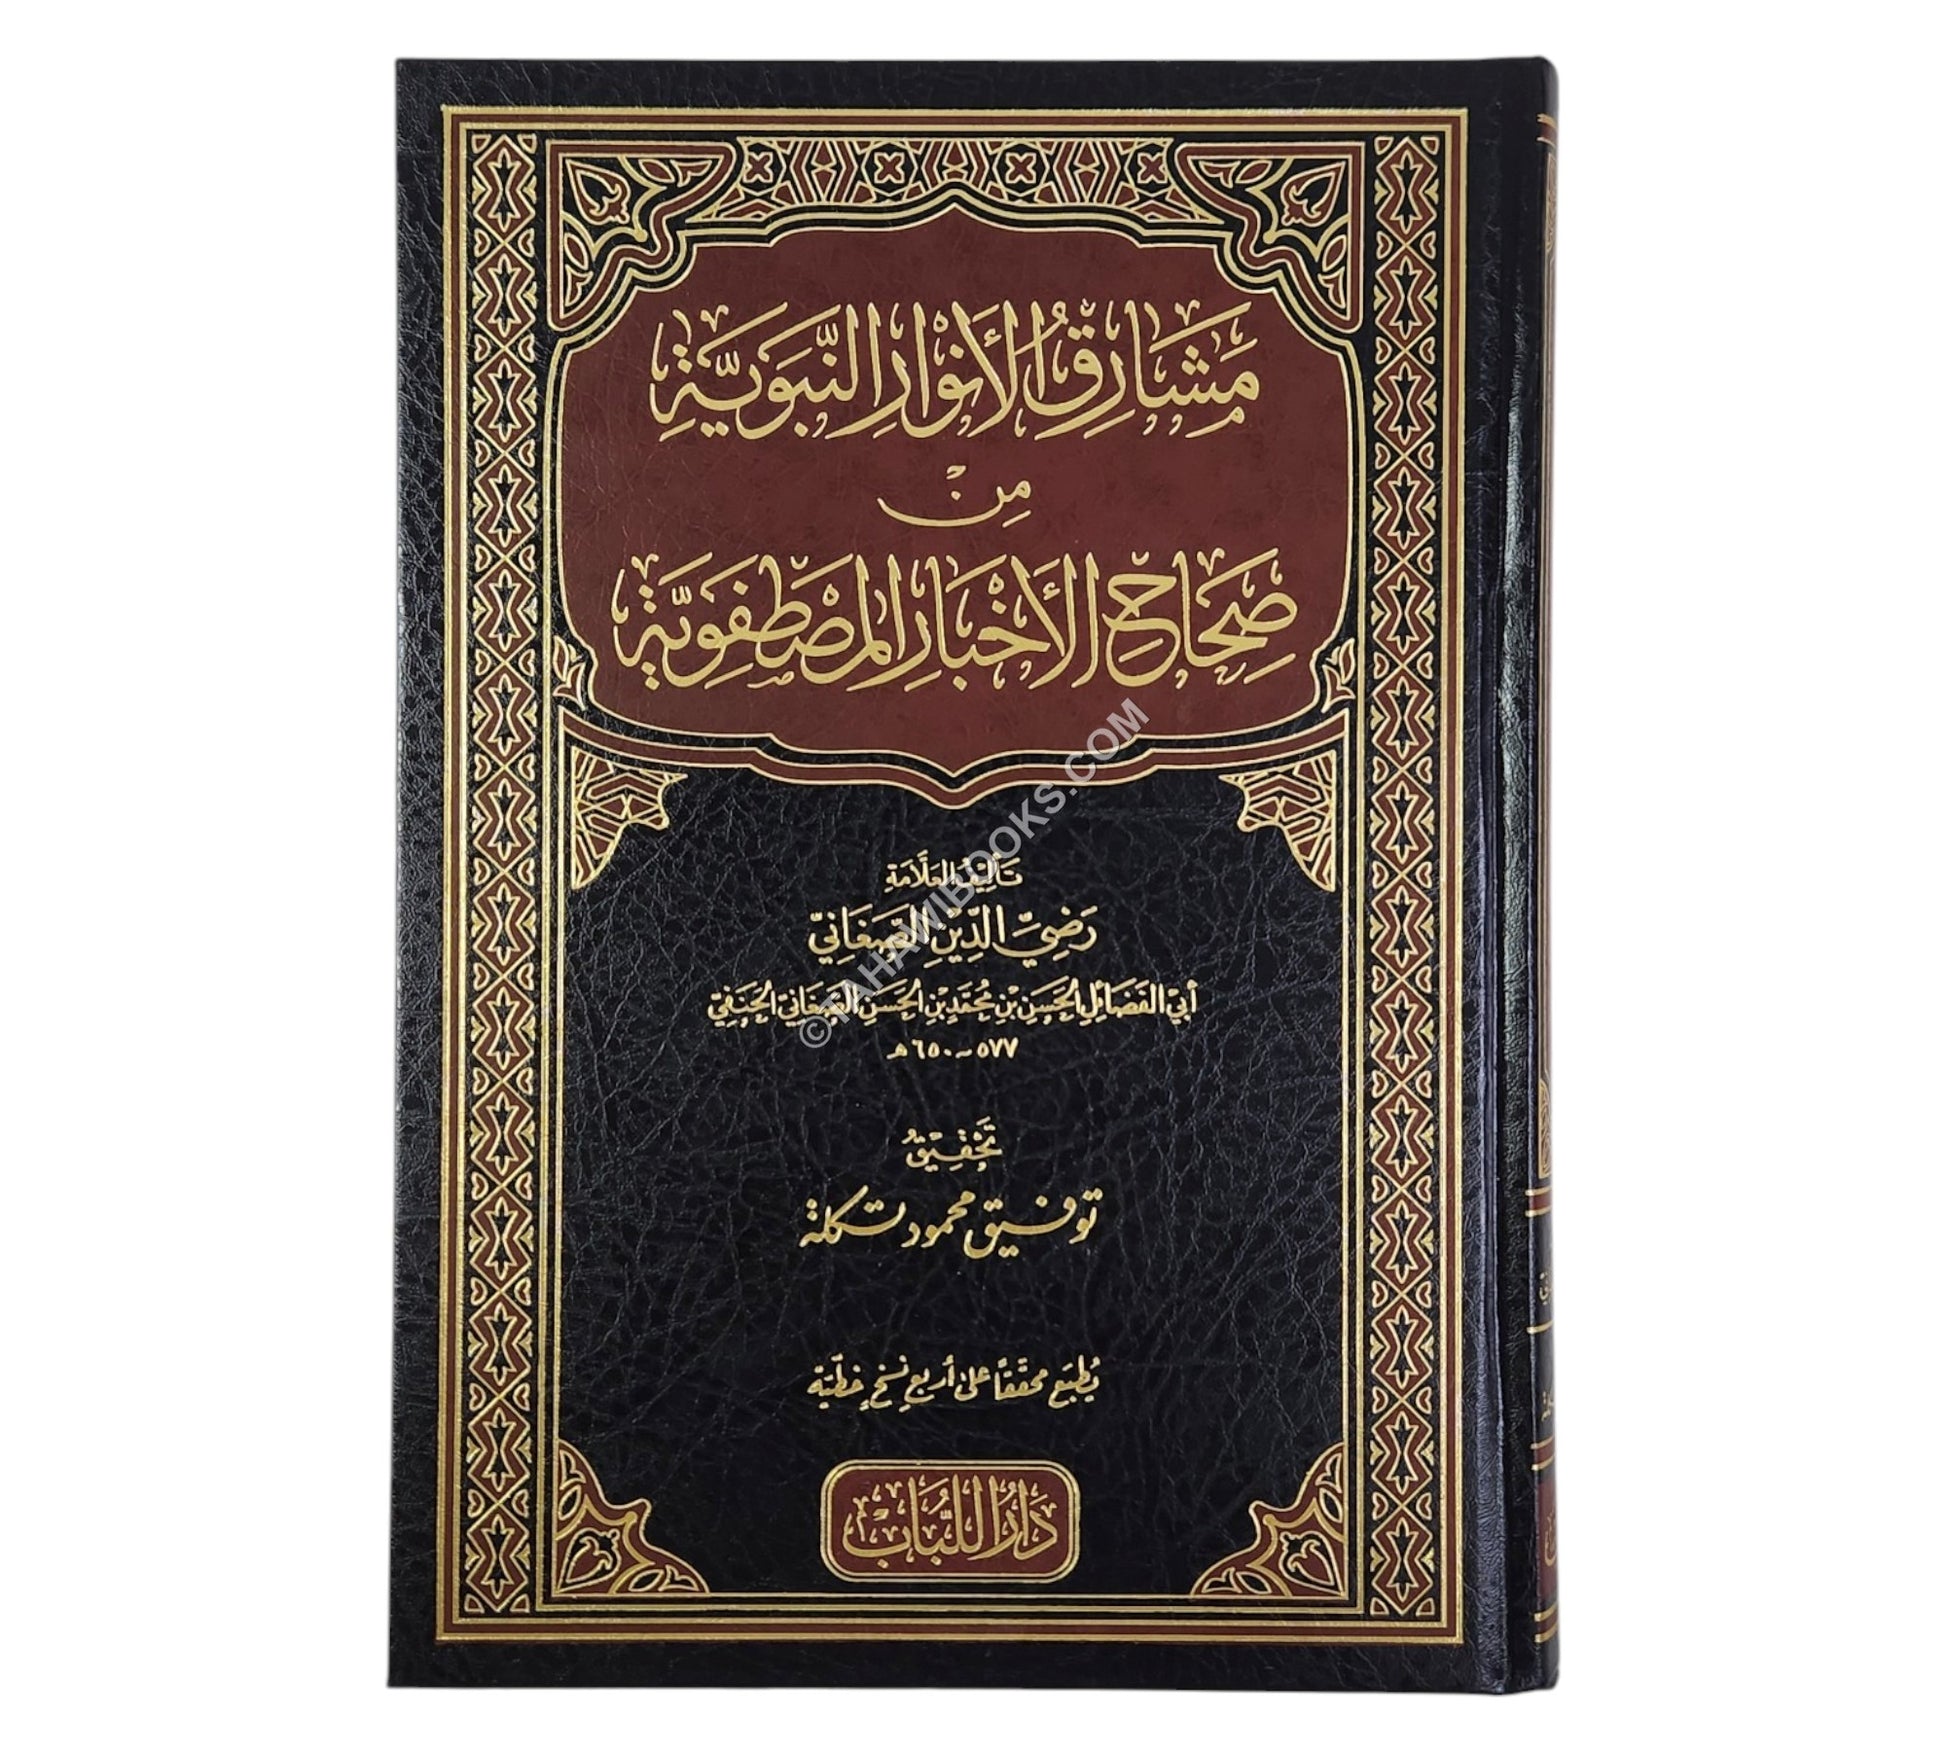 مَشَارِقُ الأَنْوَارِ النَّبَوِيَّةِ
مِنْ
صِحَاحِ الأَخْبَارِ المُصْطَفَوِيَّةِ
تَأليفُ العَلَّامَةِ
رَضِيِّ الدِّيْنِ الصَّغَانِيِّ
أَبِي الفَضَائِلِ الحَسَنِ بْنِ مُحَمَّدِ بْنِ الحَسَنِ الصَّغَانِيِّ الحَنَفِيِّ
٥٧٧ - ٦٥٠ هـ
تَحْقِيْقُ
توفيق محمود تكلة
يُطبَع محققًا على أربع نسخٍ خطيّة
دَارُ اللُّبَابِ
©TAHAWIBOOKS.COM